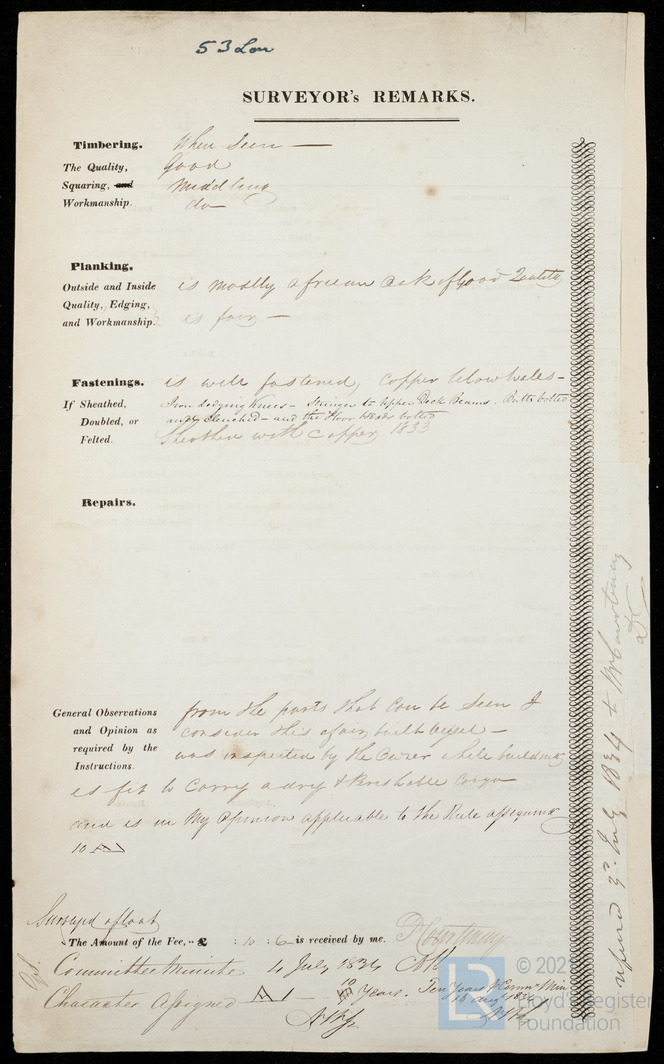 53 Lon
SURVEYOR's REMARKS.
Timbering. When Seen —
The Quality, Good
Squaring, and Middling
Workmanship. do —
Planking.
Outside and Inside is mostly African Oak of Good Quality
Quality, Edging,
and Workmanship. is fair —
Fastenings. is well fastened, copper below Wales —
If Sheathed, Iron Lodging Knees — Stringer to Upper Deck Beams. Butts bolted
Doubled, or and Clenched — and the Floor Heads bolted
Felted. Sheathed with Copper 1833
Repairs.
General Observations from the parts that can be seen I
and Opinion as consider this a fair built Vessel —
required by the was inspected by the Owner while building
Instructions.
is fit to Carry a dry & Perishable Cargo
and is in My Opinion applicable to the Rule assigning
10 A
Surveyed afloat
The Amount of the Fee, .. £ : 10 : 6 is received by me. Courtney
Committee Minute 4 July 1834
Character Assigned A1 — 10 Years. Ten Years Comm Min
1834
3 July 1834 Courtney
© 202
Lloyd's Register
Foundation